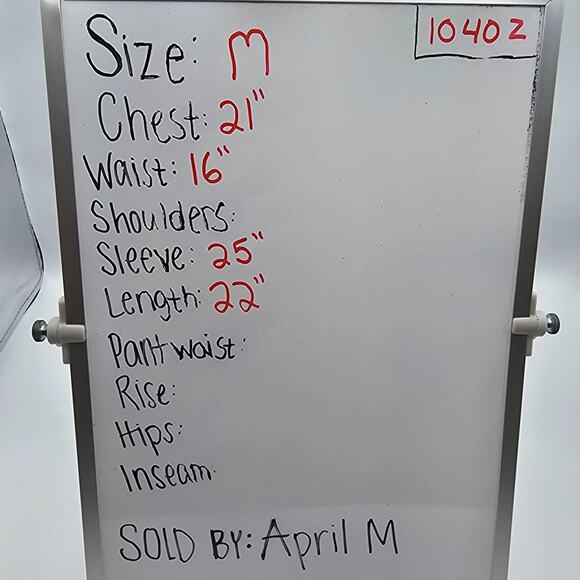 10402
Size: M
Chest: 21"
Waist: 16"
Shoulders:
Sleeve: 25"
Length: 22"
Pant waist:
Rise:
Hips:
Inseam:
SOLD BY: April M